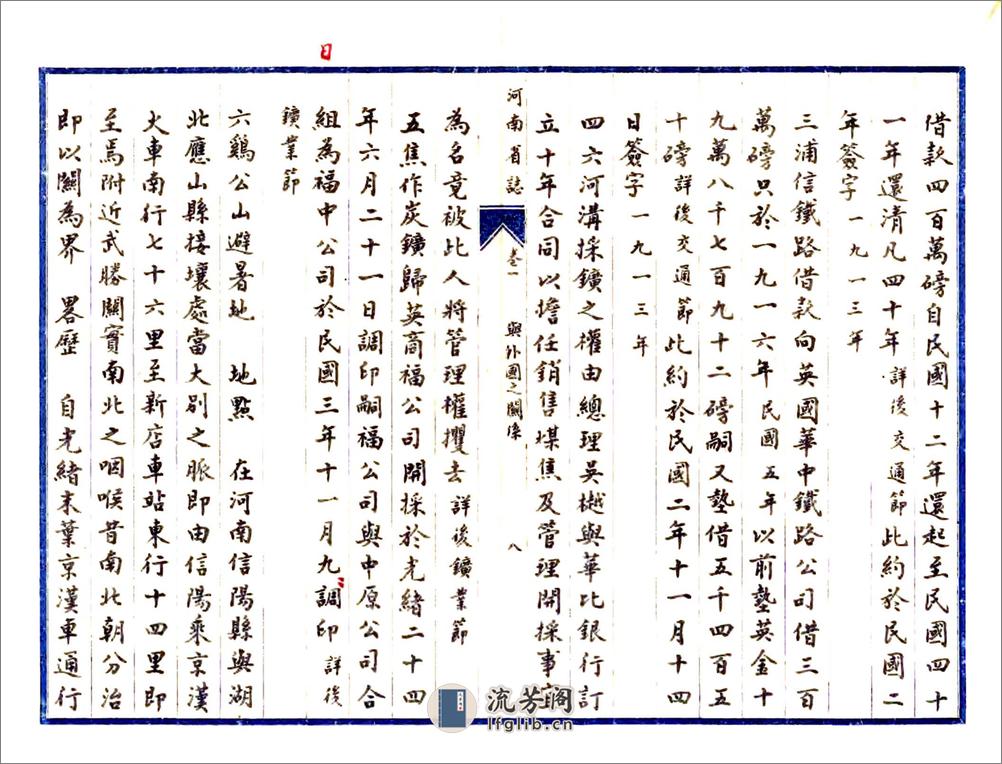 借款四百萬磅自民國十二年還起至民國四十
一年還清凡四十年詳後交通節此約於民國二
年簽字一九一三年
三浦信鐵路借款向英國華中鐵路公司借三百
萬磅只於一九一六年民國五年以前墊英金十
九萬八千七百九十二磅嗣又墊借五千四百五
十磅詳後交通節此約於民國二年十一月十四
日簽字一九一三年
四六河溝採鑛之權由總理吳樾與華比銀行訂
立十年合同以擔任銷售煤焦及管理開採事宜
河南省誌 卷一 與外國之關係 八
為名竟被此人將管理權攫去詳後鑛業節
五焦作炭鑛歸英商福公司開採於光緒二十四
年六月二十一日調印嗣福公司與中原公司合
日
組為福中公司於民國三年十一月九調印詳後
鑛業節
六鷄公山避暑地 地點 在河南信陽縣與湖
北應山縣接壤處當大別之脈即由信陽乘京漢
火車南行七十六里至新店車站東行十四里即
至焉附近武勝關實南北之咽喉昔南北朝分治
即以關為界 畧歷 自光緒末葉京漢車通行
流芳阁
lfglib.cn